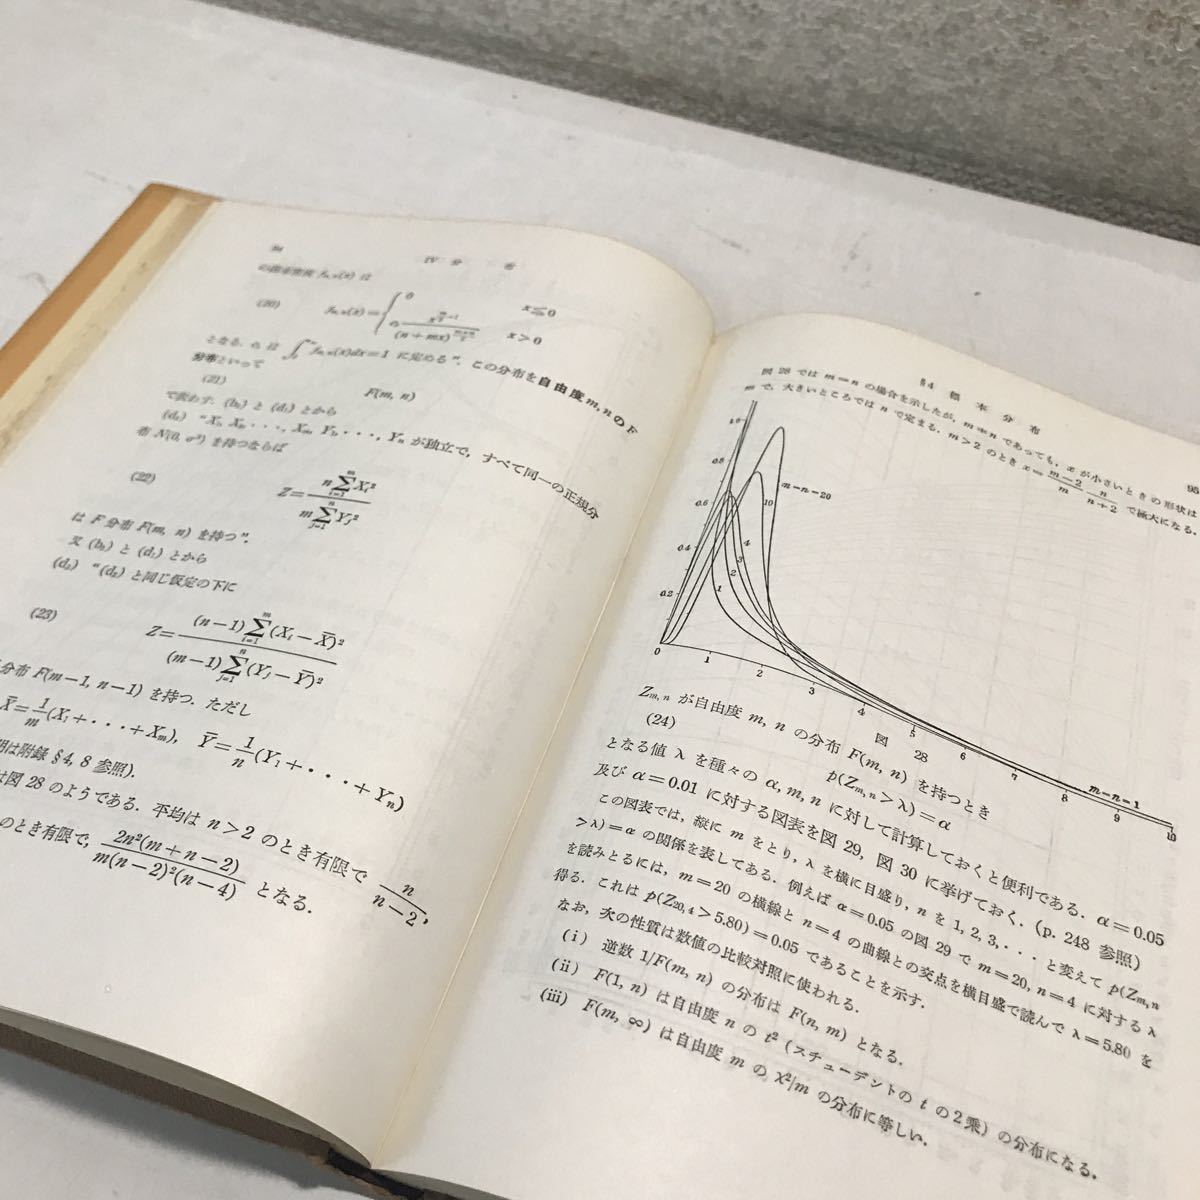 94 IV 分 布
の確率密度 fₘ,ₙ(x) は
(20) fₘ,ₙ(x)= { 0 x≦0
x^{m/2-1}/(n+mx)^{(m+n)/2} x>0
となる. は ∫ fₘ,ₙ(x)dx=1 に定める”. この分布を自由度 m, n の F
分布といって
(21) F(m, n)
で表わす. (b₃) と (d₁) とから
(d₂) “X₁, X₂, ···, Xₘ, Y₁, ···, Yₙ が独立で, すべて同一の正規分
布 N(0, σ²) を持つならば
(22) Z= n∑_{i=1}^{m}Xᵢ² / m∑_{j=1}^{n}Yⱼ²
は F 分布 F(m, n) を持つ”.
又 (b₅) と (d₁) とから
(d₃) “(d₂) と同じ仮定の下に
(23) Z= (n-1)∑_{i=1}^{m}(Xᵢ-X̄)² / (m-1)∑_{j=1}^{n}(Yⱼ-Ȳ)²
分布 F(m-1, n-1) を持つ. ただし
X̄=1/m(X₁+···+Xₘ), Ȳ=1/n(Y₁+···+Yₙ)
明は附録 §4, 8 参照).
は図 28 のようである. 平均は n>2 のとき有限で n/(n-2),
のとき有限で, 2n²(m+n-2)/m(n-2)²(n-4) となる.
§4 標 本 分 布 95
図 28 では m=n の場合を示したが, m≠n であっても, x が小さいときの形状は
m で, 大きいところでは n で定まる. m>2 のとき x=(m-2)/m n/(n+2) で極大になる.
1.0
0.8
0.6
0.4
0.2
m=n=20
10
4
3
2
1
m=n=1
0 1 2 3 4 5 6 7 8 9 10
図 28
Zₘ,ₙ が自由度 m, n の分布 F(m, n) を持つとき
(24) p(Zₘ,ₙ>λ)=α
となる値 λ を種々の α, m, n に対して計算しておくと便利である. α=0.05
及び α=0.01 に対する図表を図 29, 図 30 に挙げておく. (p. 248 参照)
この図表では, 縦に m をとり, λ を横に目盛り, n を 1, 2, 3, ··· と変えて p(Zₘ,ₙ
>λ)=α の関係を表してある. 例えば α=0.05 の図 29 で m=20, n=4 に対する λ
を読みとるには, m=20 の横線と n=4 の曲線との交点を横目盛で読んで λ=5.80 を
得る. これは p(Z₂₀,₄>5.80)=0.05 であることを示す.
なお, 次の性質は数値の比較対照に使われる.
(i) 逆数 1/F(m, n) の分布は F(n, m) となる.
(ii) F(1, n) は自由度 n の t² (スチューデントの t の2乗) の分布になる.
(iii) F(m, ∞) は自由度 m の χ²/m の分布に等しい.